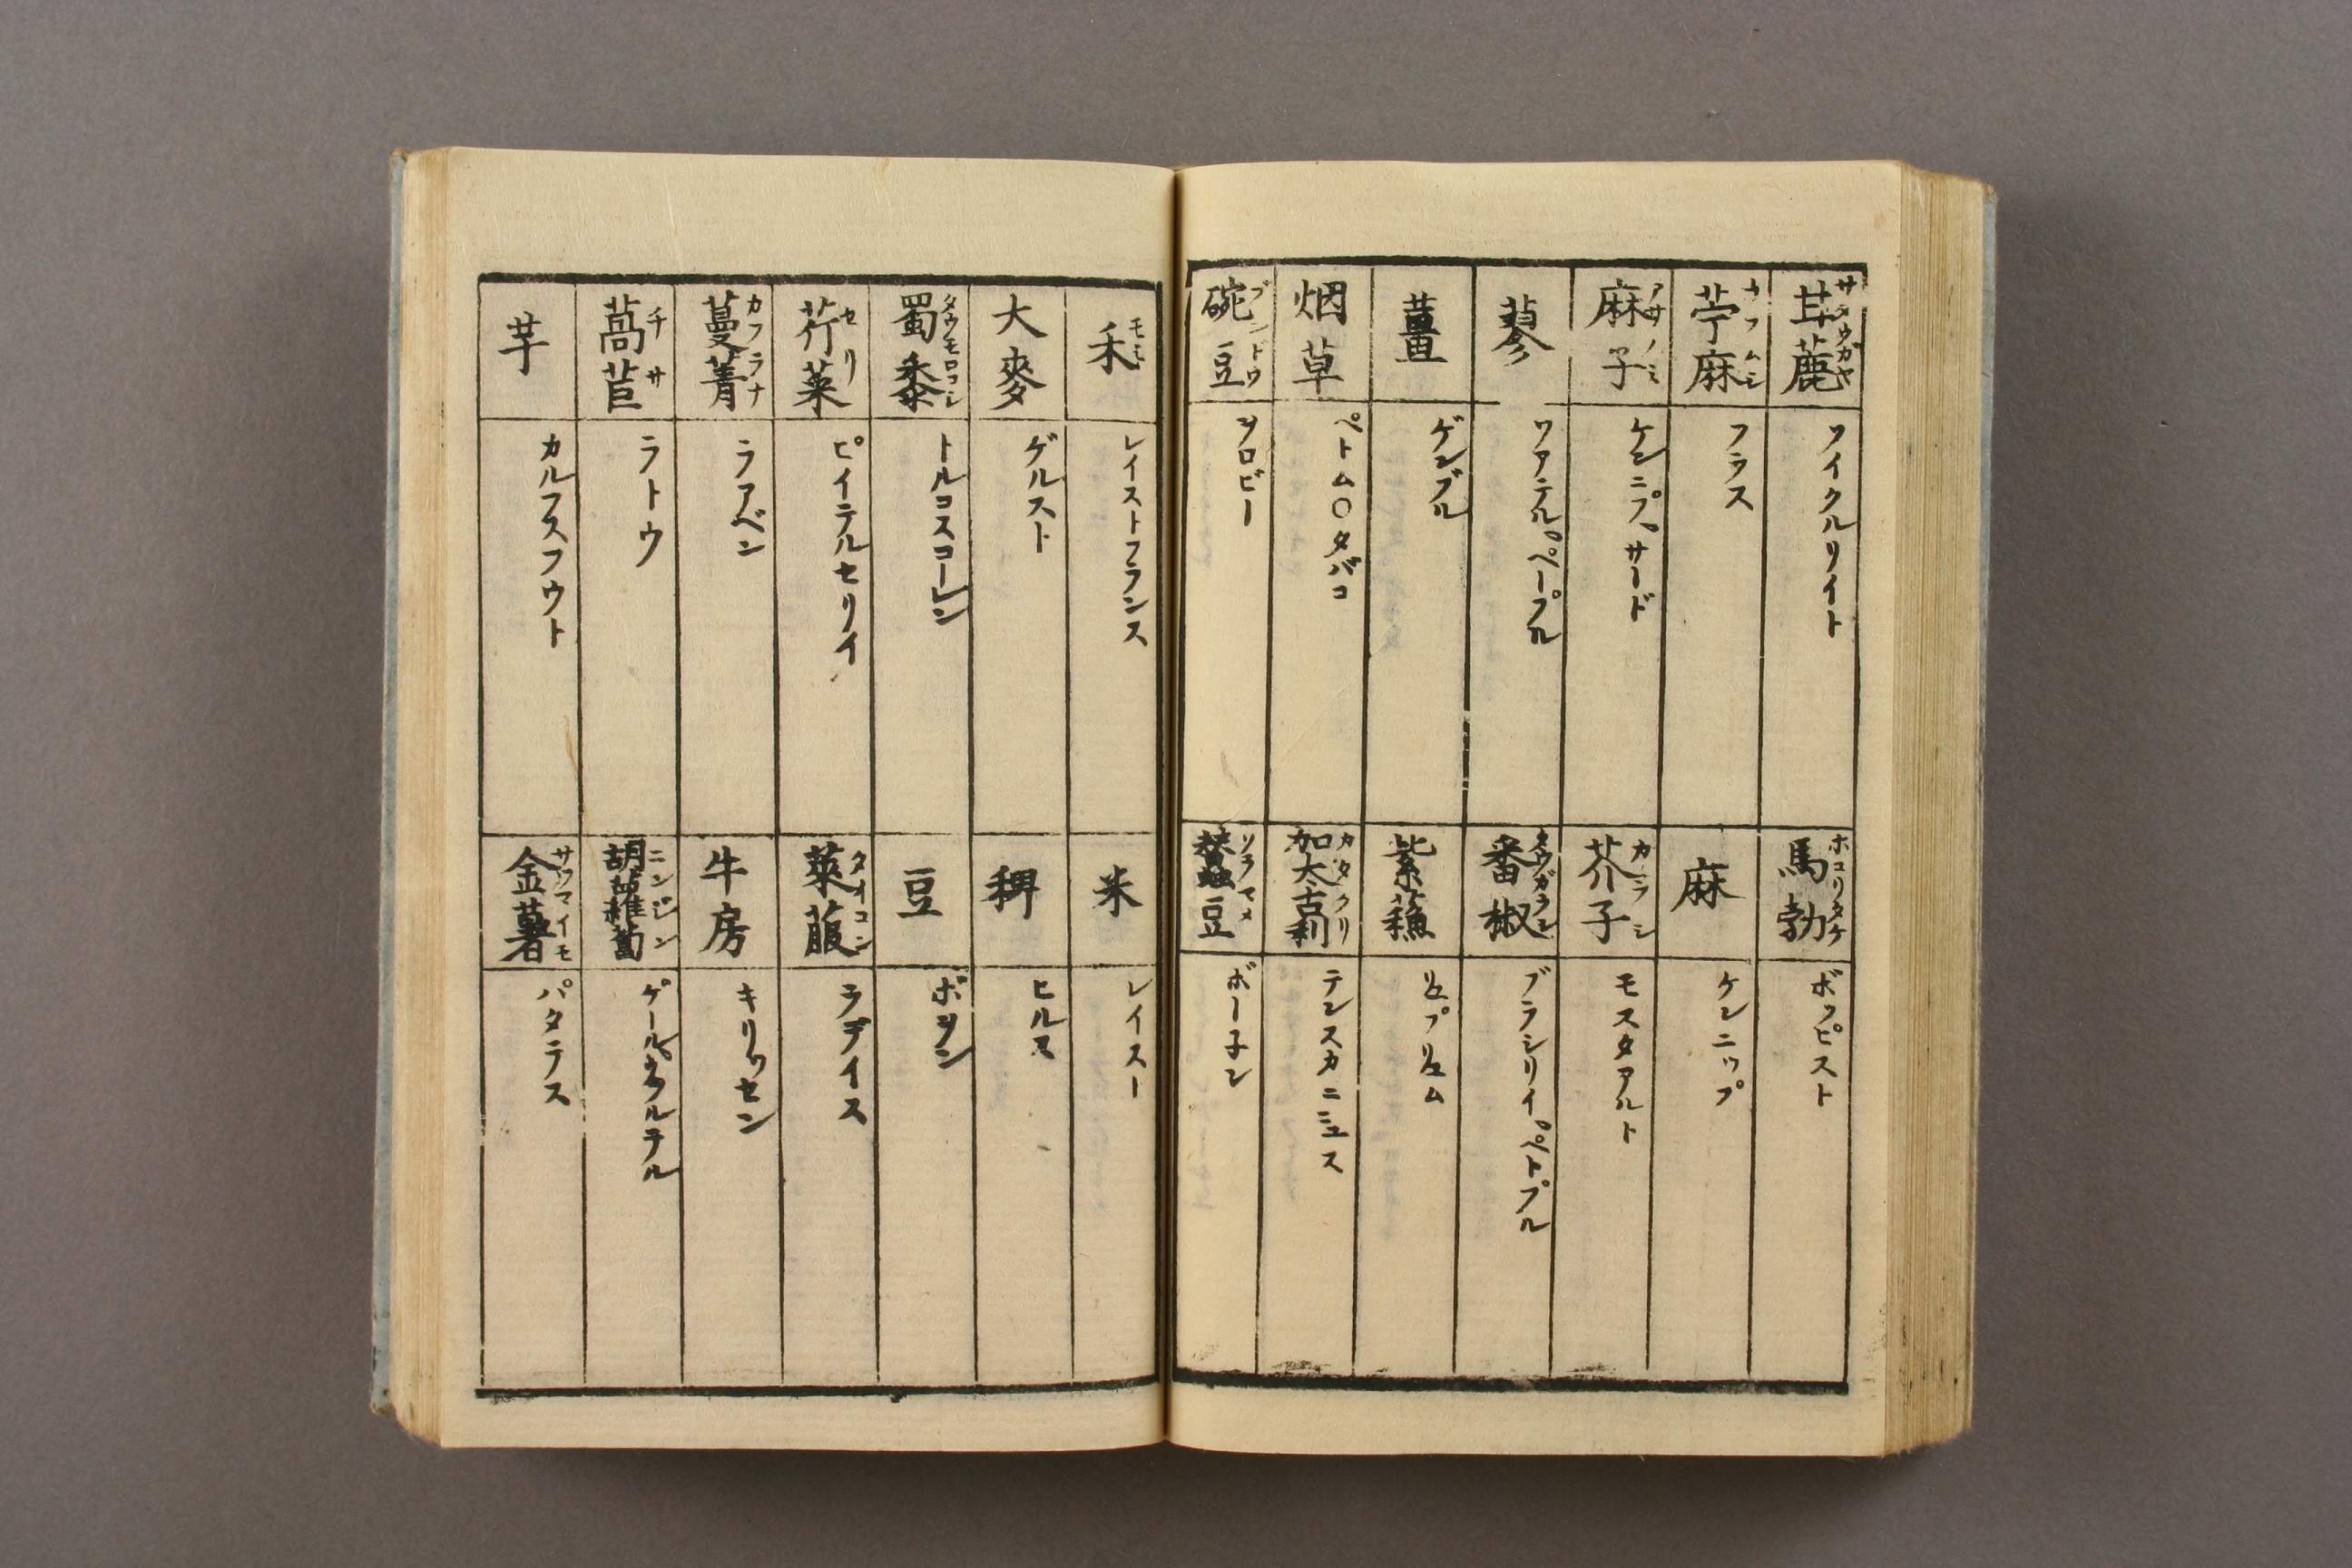 サタウガヤ
甘蔗
ワイクルリイト
ナフムシ
苧麻
フラス
アサノミ
麻子
ケンニプ、サード
蓼
ワアテル、ペープル
薑
ゲンブル
烟草
ペトム○タバコ
ブンドウ
豌豆
ヲロビー
ホコリタケ
馬勃
ボッピスト
麻
ケンニップ
カラシ
芥子
モスタアルト
タウガラシ
番椒
ブラシリイ、ペトプル
紫蘓
リュプリュム
カタクリ
加太古利
テンスカニミュス
ソラマメ
蠶豆
ボー子ン
モミ
禾
レイストフランス
大麥
ゲルスト
タウモロコシ
蜀黍
トルコスコーレン
セリ
荇菜
ピイテルセリイ
カブラナ
蔓菁
ラアベン
チサ
萵苣
ラトウ
芋
カルフスフウト
米
レイスー
稗
ヒルス
豆
ボヲン
タイコン
萊菔
ラデイス
牛房
キリッセン
ニンジン
胡蘿蔔
ゲールウヲルテル
サツマイモ
金薯
パタテス